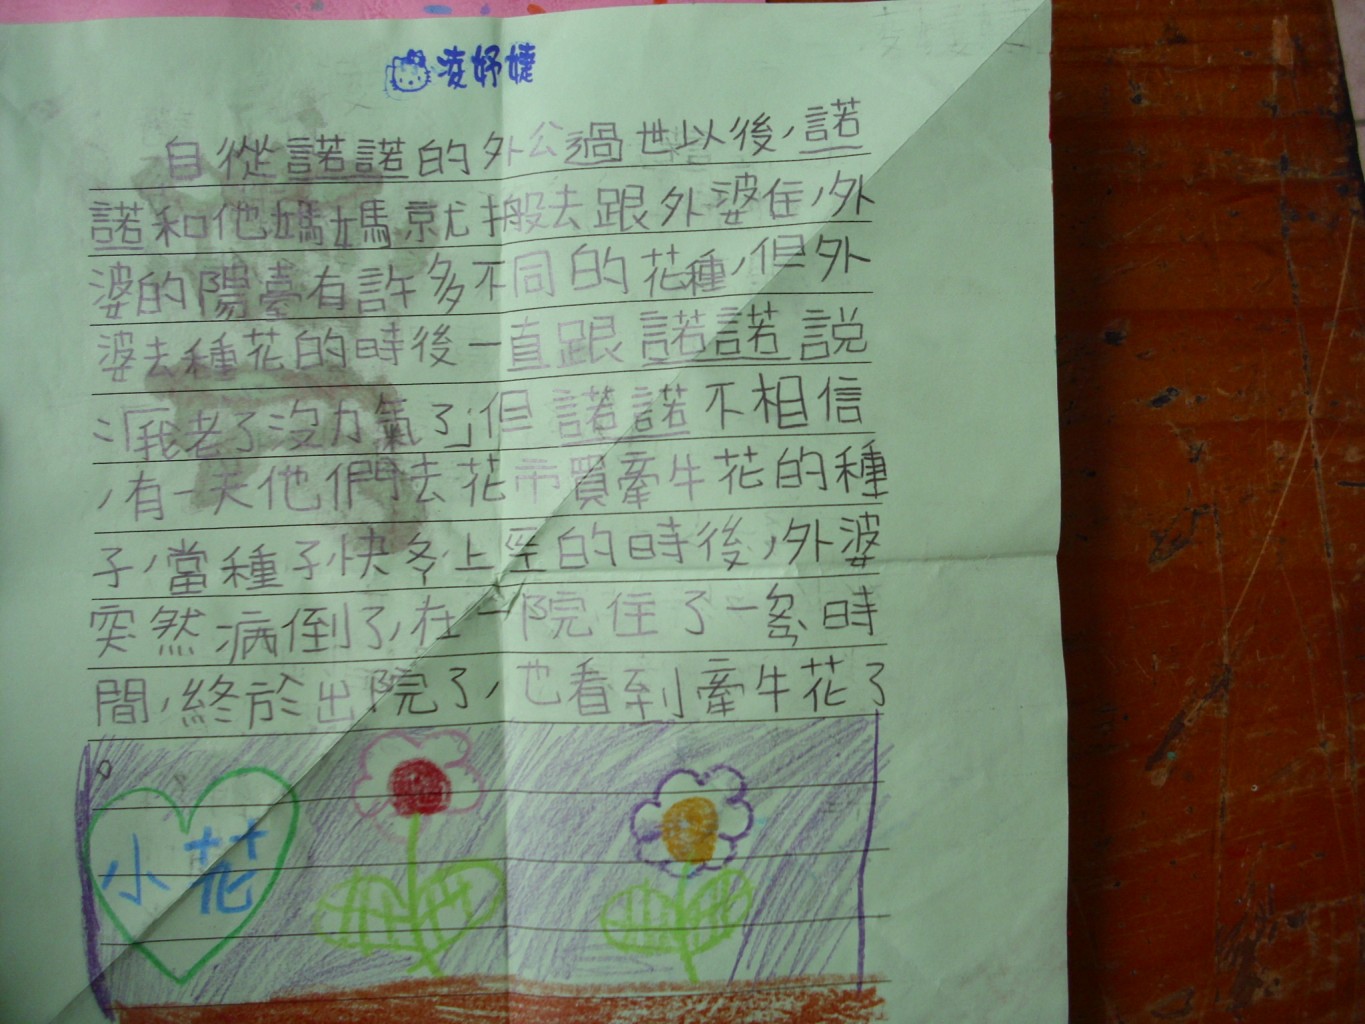 凌妤婕
自從諾諾的外公過世以後,諾
諾和他媽媽就搬去跟外婆住,外
婆的陽臺有許多不同的花種,但外
婆去種花的時後一直跟諾諾說
:「我老了沒力氣了」但諾諾不相信
,有一天他們去花市買牽牛花的種
子,當種子快冬上至的時後,外婆
突然病倒了,在一院住了一多時
間,終於出院了,也看到牽牛花了
。
小花